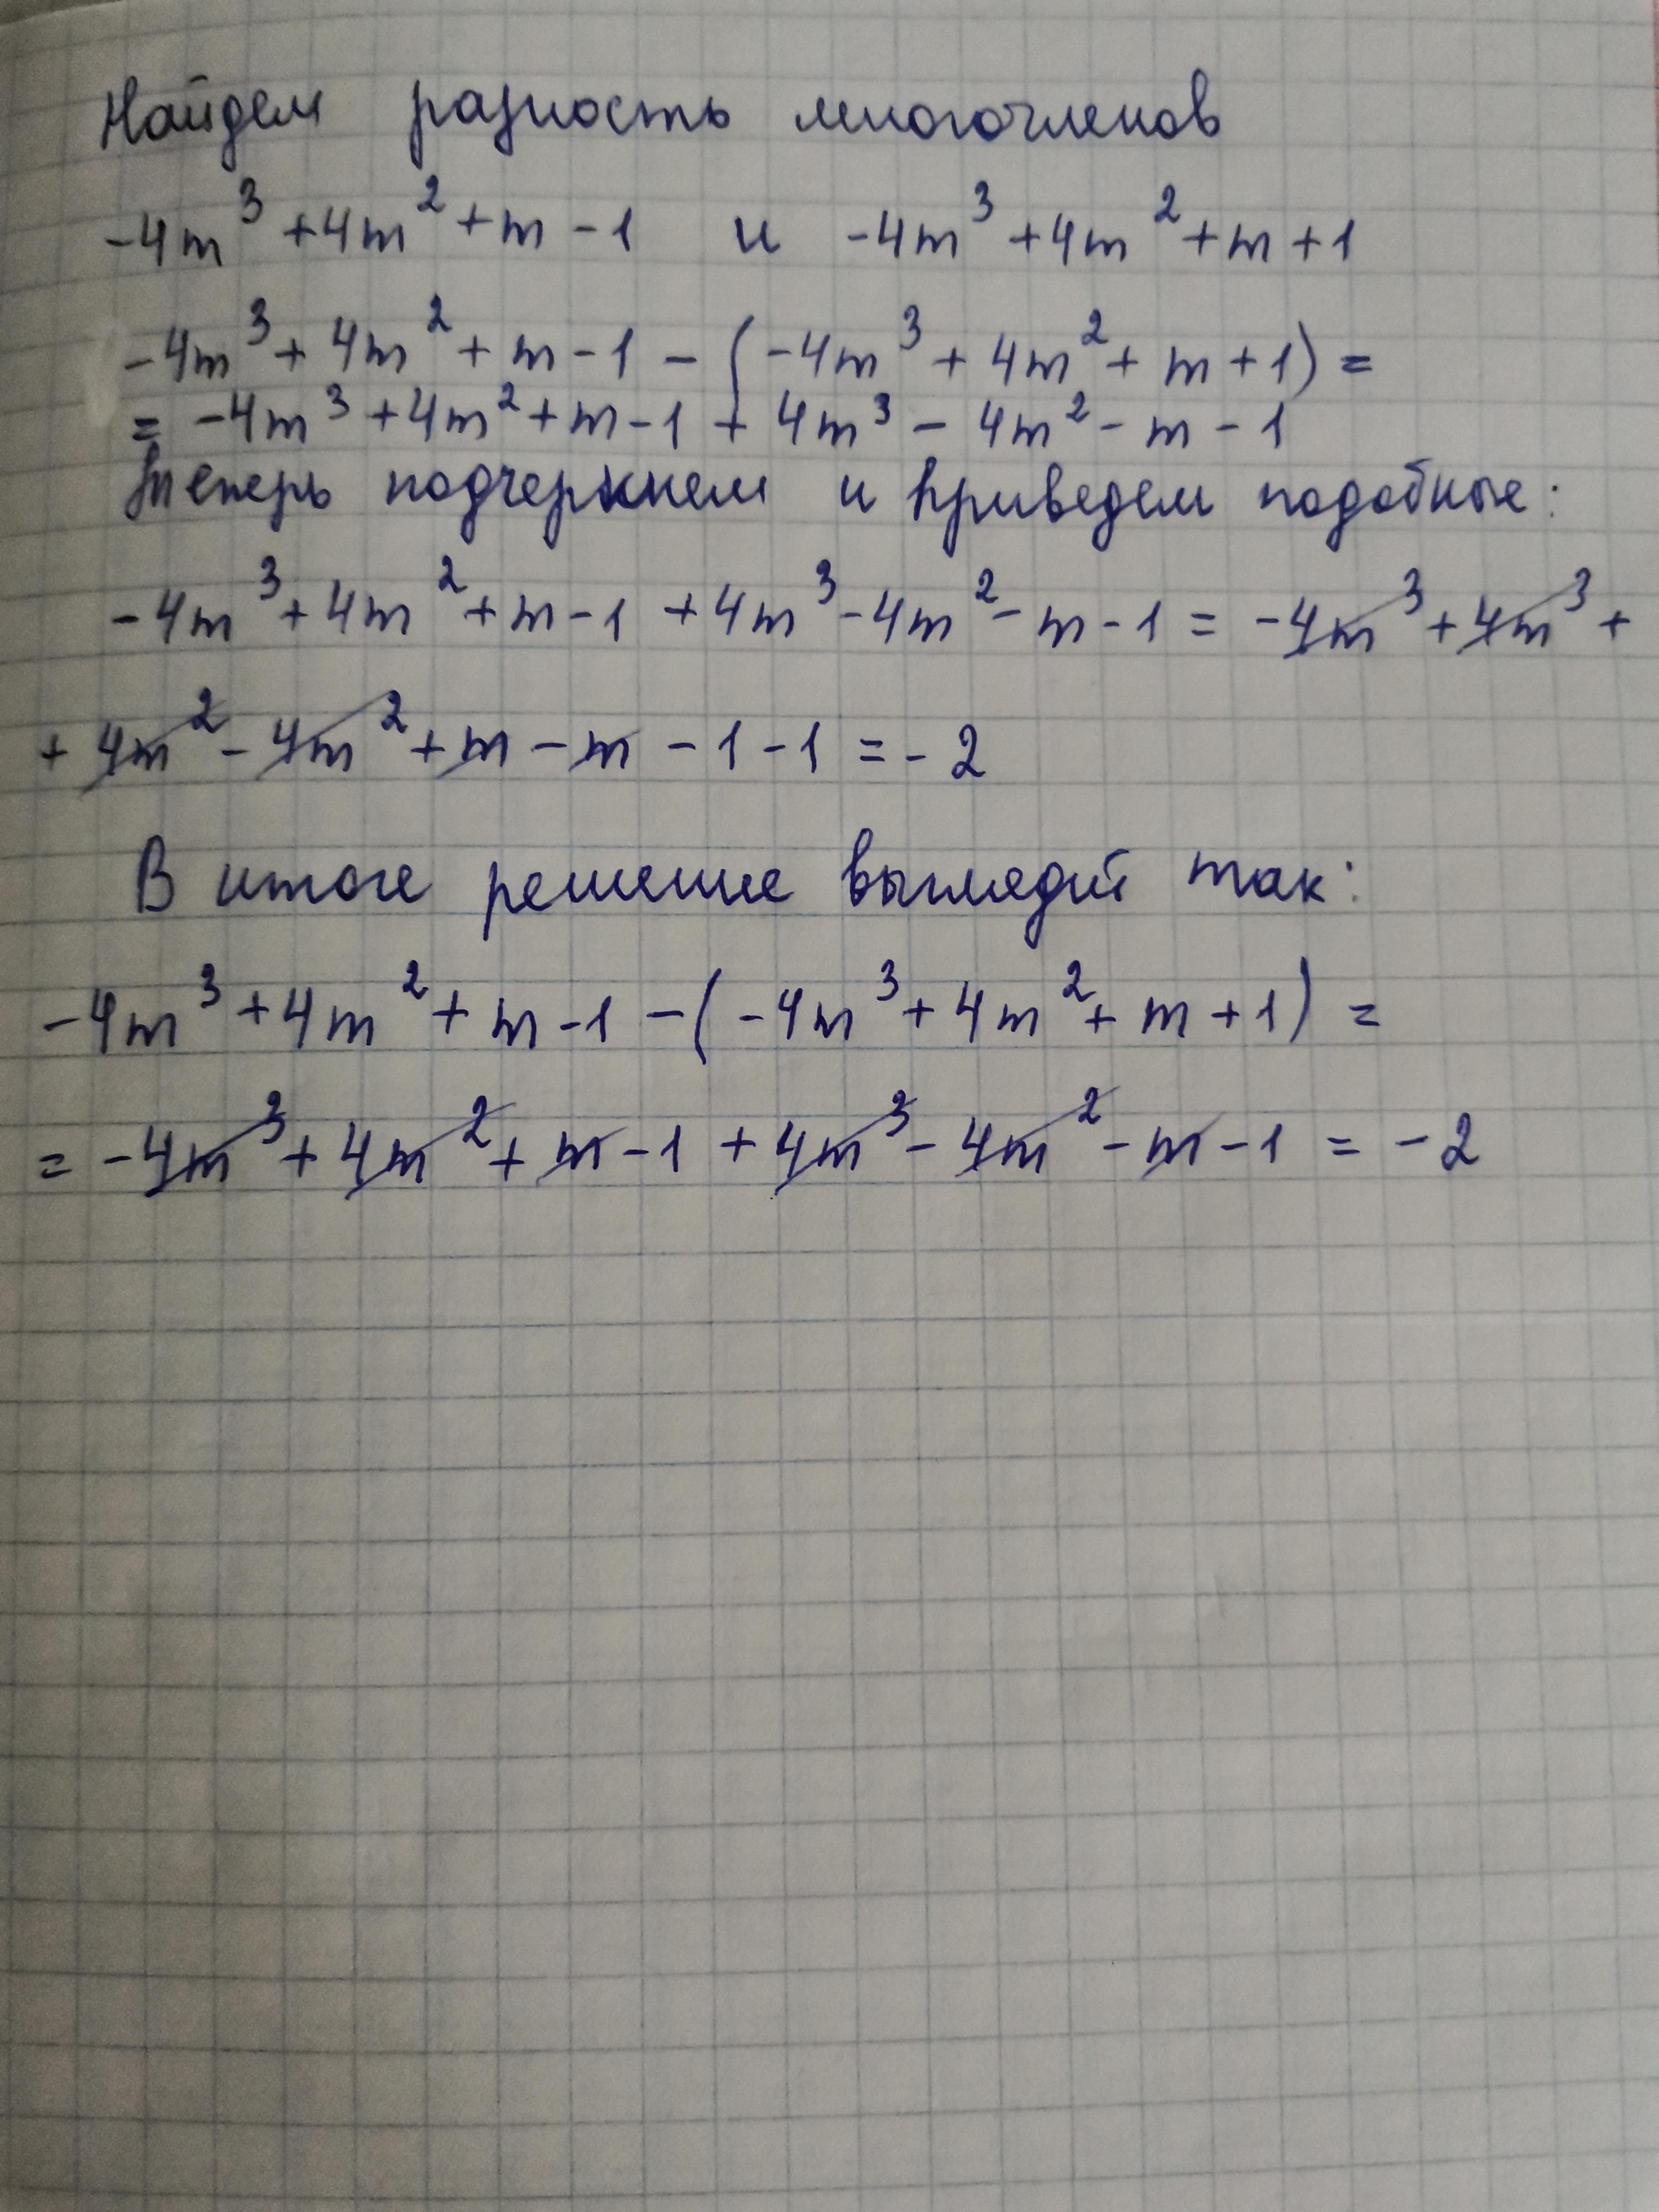 Найдем разность многочленов
-4m³+4m²+m-1 и -4m³+4m²+m+1
-4m³+4m²+m-1-(-4m³+4m²+m+1)=
=-4m³+4m²+m-1+4m³-4m²-m-1
Теперь подчеркнем и приведем подобные:
-4m³+4m²+m-1+4m³-4m²-m-1=-4m³+4m³+
+4m²-4m²+m-m-1-1=-2
В итоге решение выглядит так:
-4m³+4m²+m-1-(-4m³+4m²+m+1)=
=-4m³+4m²+m-1+4m³-4m²-m-1=-2